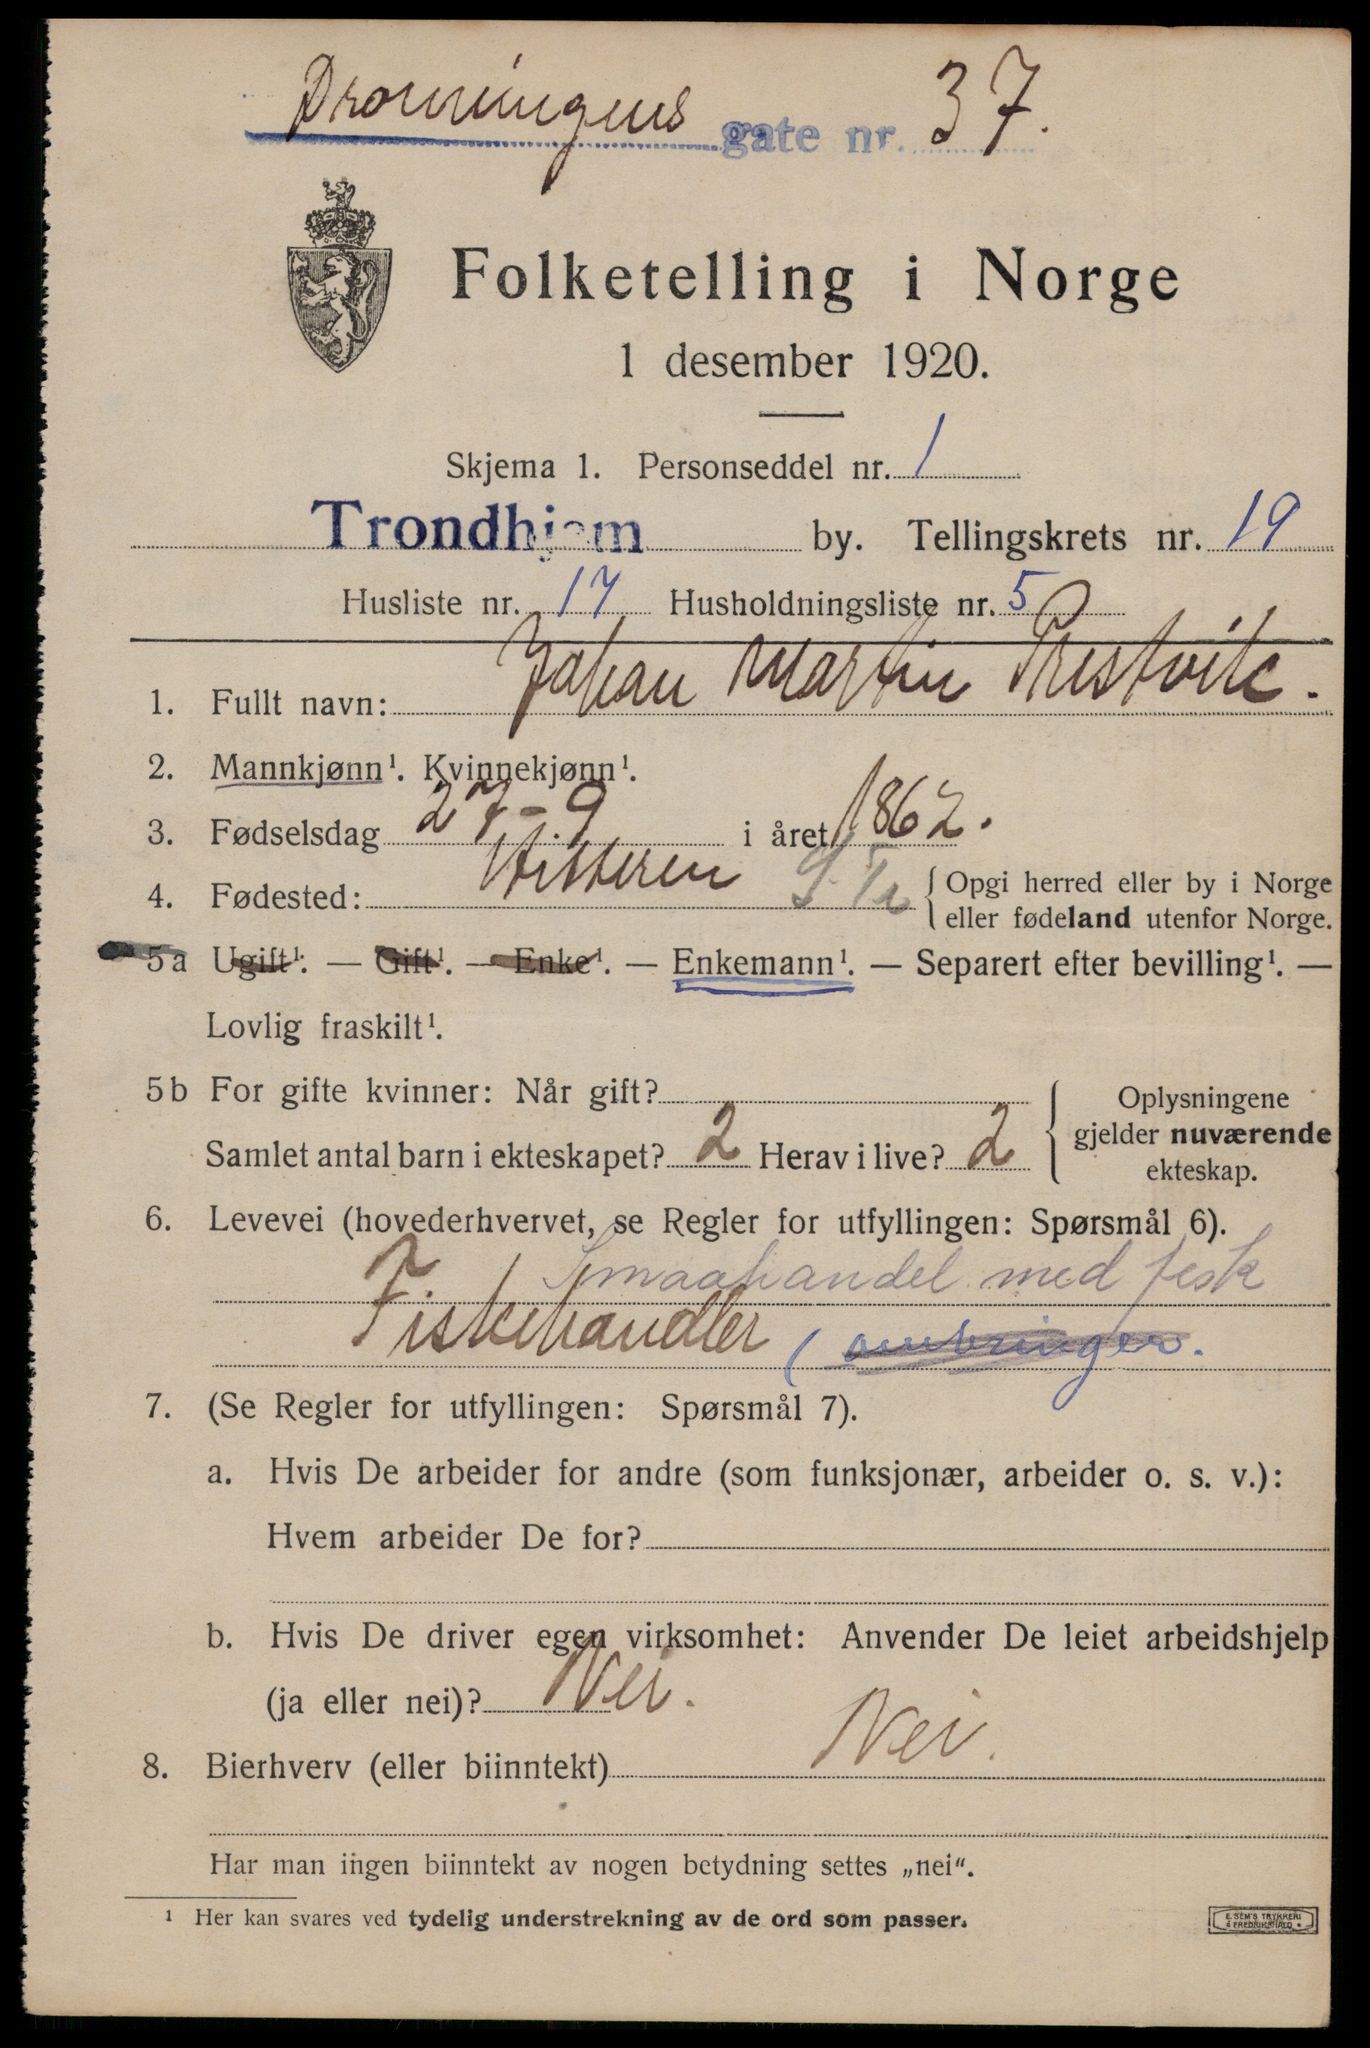 Dronningens gate nr. 37.
Folketelling i Norge
1 desember 1920.
Skjema 1. Personseddel nr. 1
Trondhjem by. Tellingskrets nr. 19
Husliste nr. 17 Husholdningsliste nr. 5
1. Fullt navn: Johan Martin Prestvik.
2. Mannkjønn¹. Kvinnekjønn¹.
3. Fødselsdag 27-9 i året 1862.
4. Fødested: Hitteren S. Tr { Opgi herred eller by i Norge
eller fødeland utenfor Norge.
5a Ugift¹. — Gift¹. — Enke¹. — Enkemann¹. — Separert efter bevilling¹. —
Lovlig fraskilt¹.
5b For gifte kvinner: Når gift?
Samlet antal barn i ekteskapet? 2 Herav i live? 2 { Oplysningene
gjelder nuværende
ekteskap.
6. Levevei (hovederhvervet, se Regler for utfyllingen: Spørsmål 6).
Smaahandel med fesk
Fiskehandler ( ombringer.
7. (Se Regler for utfyllingen: Spørsmål 7).
a. Hvis De arbeider for andre (som funksjonær, arbeider o. s. v.):
Hvem arbeider De for?
b. Hvis De driver egen virksomhet: Anvender De leiet arbeidshjelp
(ja eller nei)? Nei.
8. Bierhverv (eller biinntekt) Nei.
Har man ingen biinntekt av nogen betydning settes „nei“.
¹ Her kan svares ved tydelig understrekning av de ord som passer.
E. SEM'S TRYKKERI
FREDRIKSHALD